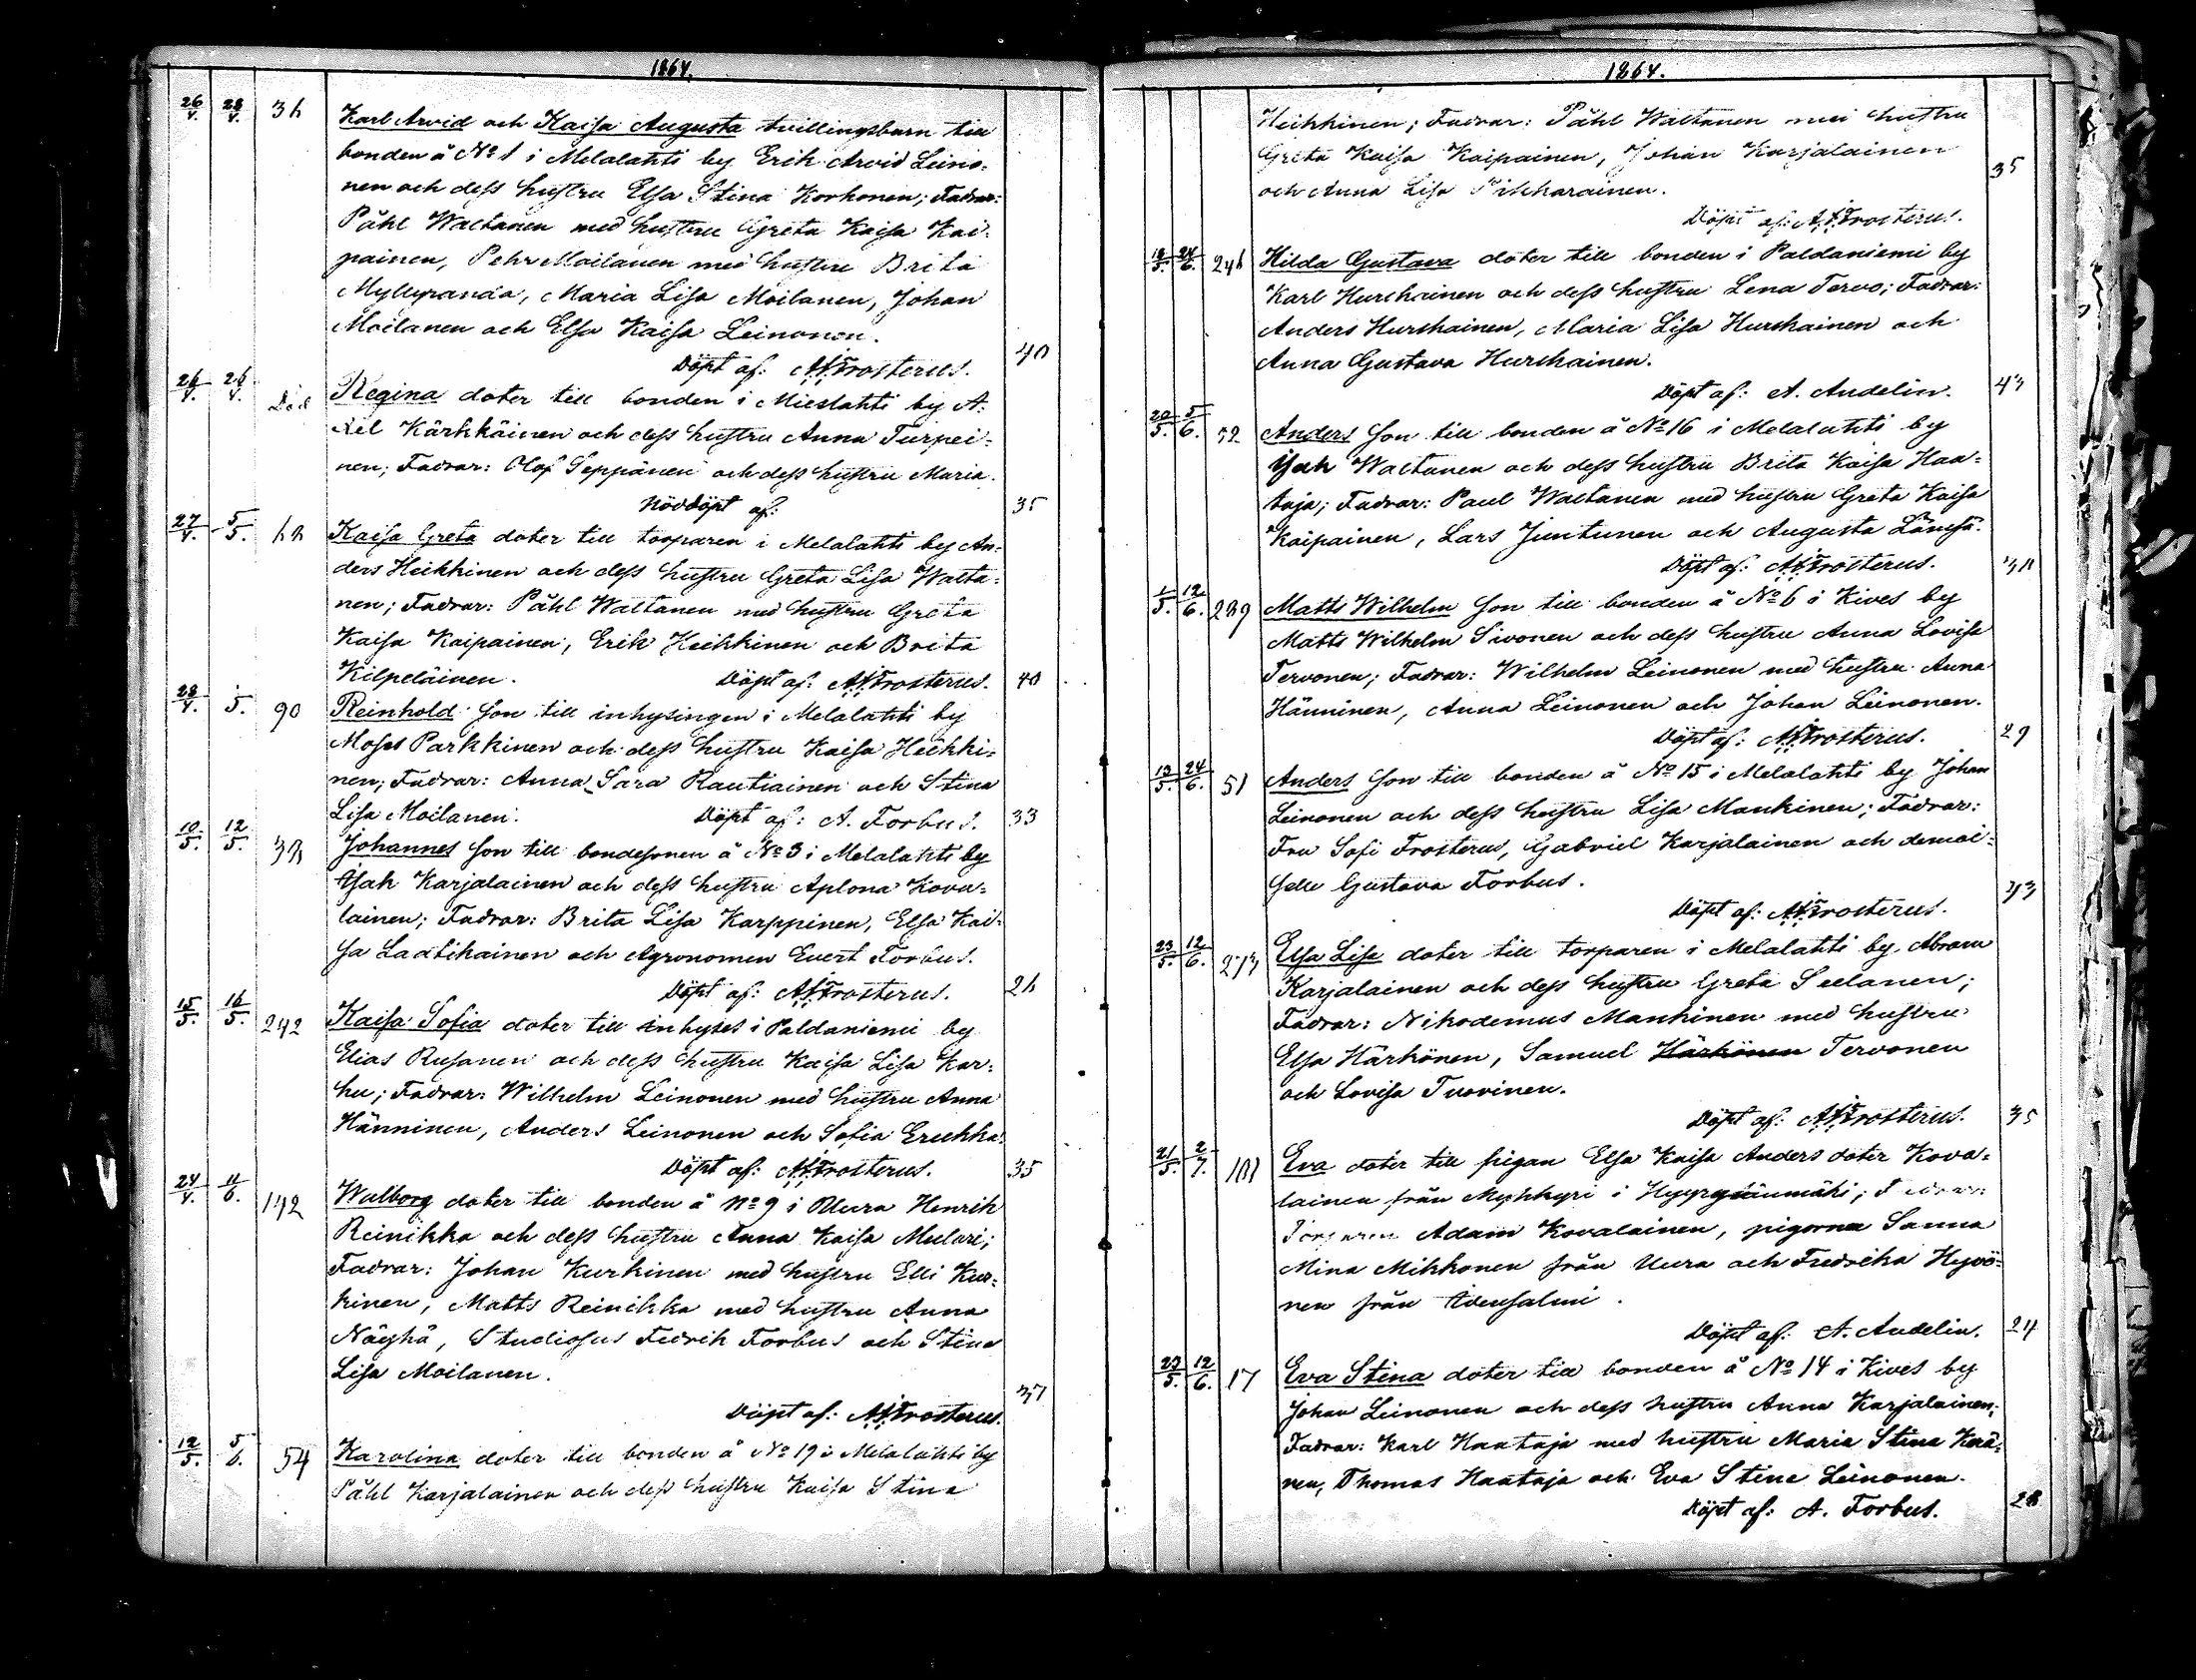 1864.
26/4. 28/4. 36 Karl Arvid och Kaisa Augusta tvillingsbarn till
bonden å No 1 i Melalahti by Erik Arvid Leino-
nen och dess hustru Elsa Stina Korhonen; Fadrar:
Påhl Waltanen med hustru Greta Kaisa Kai-
painen, Pehr Moilanen med hustru Brita
Myllyranda, Maria Lisa Moilanen, Johan
Moilanen och Elsa Kaisa Leinonen.
Döpt af: A.F.Frosterus. 40
26/4. 26/4. Död Regina doter till bonden i Mieslahti by A-
xel Kärkkäinen och dess hustru Anna Turpei-
nen; Fadrar: Olof Seppänen och dess hustru Maria.
Nöddöpt af: 35
27/4. 5/5. Kaisa Greta doter till torparen i Melalahti by An-
ders Heikkinen och dess hustru Greta Lisa Walta-
nen; Fadrar: Påhl Waltanen med hustru Greta
Kaisa Kaipainen, Erik Heikkinen och Brita
Kilpeläinen. Döpt af: A.F.Frosterus. 40
28/4. 5. 90 Reinhold son till inhysingen i Melalahti by
Moses Parkkinen och dess hustru Kaisa Heikki-
nen; Fadrar: Anna Sara Rautiainen och Stina
Lisa Moilanen. Döpt af: A. Forbus. 33
10/5. 12/5. 38 Johannes son till bondesonen å No 3 i Melalahti by
Isak Karjalainen och dess hustru Aplona Kova-
lainen; Fadrar: Brita Lisa Karppinen, Elsa Kai-
sa Laatikainen och Agronomen Evert Forbus.
Döpt af: A.F.Frosterus. 26
15/5. 16/5. 242 Kaisa Sofia doter till inhyses i Paldaniemi by
Elias Rusanen och dess hustru Kaisa Lisa Kar-
hu; Fadrar: Wilhelm Leinonen med hustru Anna
Hänninen, Anders Leinonen och Sofia Erukka.
Döpt af: A.F.Frosterus. 35
24/4. 11/6. 192 Walborg doter till bonden å No 9 i Uura Henrik
Reinikka och dess hustru Anna Kaisa Mulari;
Fadrar: Johan Kurkinen med hustru Elli Kur-
kinen, Matts Reinikka med hustru Anna
Näyhä, Studiosus Fedrik Forbus och Stina
Lisa Moilanen.
Döpt af: A.F.Frosterus. 37
12/5. 5/6. 54 Karolina doter till bonden å No 19 i Melalahti by
Påhl Karjalainen och dess hustru Kaisa Stina
1864.
Heikkinen; Fadrar: Påhl Waltanen med hustru
Greta Kaisa Kaipainen, Johan Karjalainen
och Anna Lisa Pikkarainen. 35
Döpt af: A.F.Frosterus.
24/6. 246 Hilda Gustava doter till bonden i Paldaniemi by
Karl Hurskainen och dess hustru Lena Tervo; Fadrar:
Anders Hurskainen, Maria Lisa Hurskainen och
Anna Gustava Hurskainen.
Döpt af: A. Andelin. 43
20/5. 5/6. 52 Anders son till bonden å No 16 i Melalahti by
Isak Waltanen och dess hustru Brita Kaisa Haa-
taja; Fadrar: Paul Waltanen med hustru Greta Kaisa
Kaipainen, Lars Juntunen och Augusta Länsjä.
Döpt af: A.F.Frosterus. 38
1/5. 12/6. 289 Matts Wilhelm son till bonden å No 6 i Kives by
Matts Wilhelm Sivonen och dess hustru Anna Lovisa
Tervonen; Fadrar: Wilhelm Leinonen med hustru Anna
Hänninen, Anna Leinonen och Johan Leinonen.
Döpt af: A.F.Frosterus. 29
13/5. 24/6. 51 Anders son till bonden å No 15 i Melalahti by Johan
Leinonen och dess hustru Lisa Mankinen; Fadrar:
Fru Sofi Frosterus, Gabriel Karjalainen och demoi-
selle Gustava Forbus.
Döpt af: A.F.Frosterus. 43
23/5. 12/6. 273 Elsa Lisa doter till torparen i Melalahti by Abram
Karjalainen och dess hustru Greta Seelanen;
Fadrar: Nikodemus Mankinen med hustru
Elsa Härkönen, Samuel Härkönen Tervonen
och Lovisa Tuovinen.
Döpt af: A.F.Frosterus. 35
21/5. 2/7. 181 Eva doter till pigan Elsa Kaisa Anders doter Kova-
lainen från Mykkyri i Hyrynsänmäki; Fadrar:
Torparen Adam Kovalainen, pigorna Sanna
Mina Mikkonen från Uura och Fredrika Hyvö-
nen från Idensalmi.
Döpt af: A. Andelin. 24
23/5. 12/6. 17 Eva Stina doter till bonden å No 14 i Kives by
Johan Leinonen och dess hustru Anna Karjalainen;
Fadrar: Karl Haataja med hustru Maria Stina Kerä-
nen, Thomas Haataja och Eva Stina Leinonen.
Döpt af: A. Forbus. 28